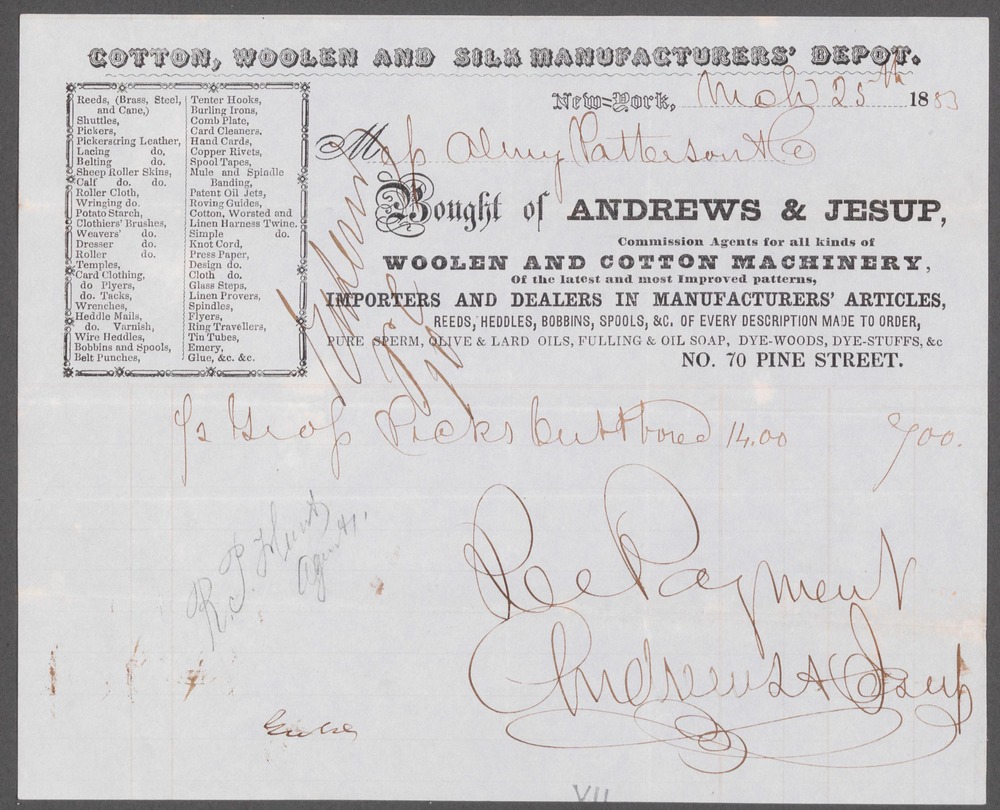 COTTON, WOOLEN AND SILK MANUFACTURERS' DEPOT.
New=York, Mch 25th 1853
Mess Almy Patterson & Co
Bought of ANDREWS & JESUP,
Commission Agents for all kinds of
WOOLEN AND COTTON MACHINERY,
Of the latest and most Improved patterns,
IMPORTERS AND DEALERS IN MANUFACTURERS' ARTICLES,
REEDS, HEDDLES, BOBBINS, SPOOLS, &C. OF EVERY DESCRIPTION MADE TO ORDER,
PURE SPERM, OLIVE & LARD OILS, FULLING & OIL SOAP, DYE-WOODS, DYE-STUFFS, &c
NO. 70 PINE STREET.
Reeds, (Brass, Steel,
and Cane,)
Shuttles,
Pickers,
Pickerstring Leather,
Lacing do,
Belting do.
Sheep Roller Skins,
Calf do. do.
Roller Cloth,
Wringing do.
Potato Starch,
Clothiers' Brushes,
Weavers' do.
Dresser do.
Roller do.
Temples,
Card Clothing,
do Plyers,
do. Tacks,
Wrenches,
Heddle Mails,
do. Varnish,
Wire Heddles,
Bobbins and Spools,
Belt Punches,
Tenter Hooks,
Burling Irons,
Comb Plate,
Card Cleaners.
Hand Cards,
Copper Rivets,
Spool Tapes,
Mule and Spindle
Banding,
Patent Oil Jets,
Roving Guides,
Cotton, Worsted and
Linen Harness Twine.
Simple do.
Knot Cord,
Press Paper,
Design do.
Cloth do.
Glass Steps,
Linen Provers,
Spindles,
Flyers,
Ring Travellers,
Tin Tubes,
Emery,
Glue, &c. &c.
1/2 Gross Picks Cut & bored 14.00 700.
R. P. Hunt
Agent
Rec Payment
Andrews & Jesup
VII